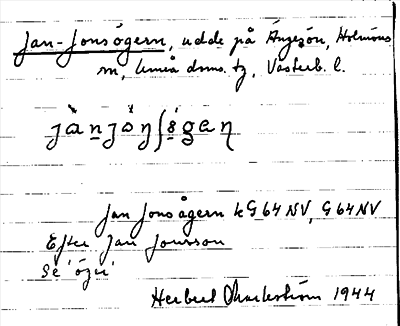 Jan-Jonsögern, udde på Ängesön, Holmöns
sn, Umeå doms. tg, Västerb. l.
Jan Jonsågern k G64NV, G64NV
Efter Jan Jonsson
Se 'ögri'
Herbert Markström 1944